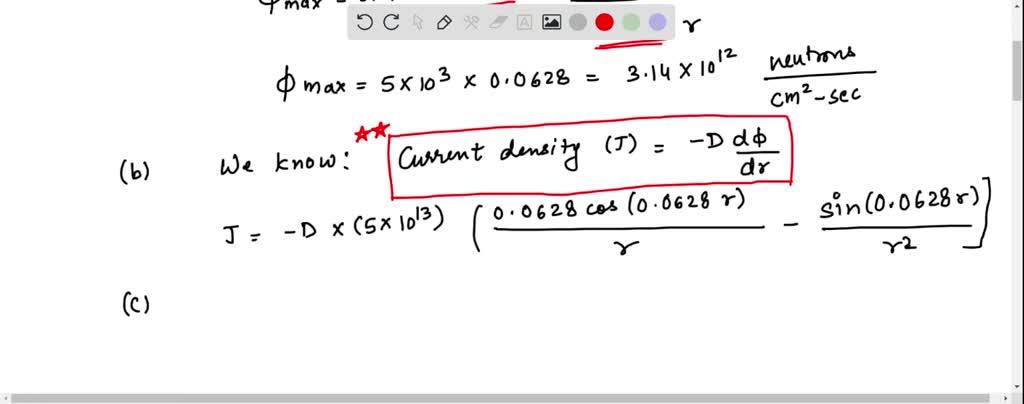 r
ϕ max = 5×10³ × 0.0628 = 3.14×10¹² neutrons/cm²-sec
(b) We know: ** Current density (J) = -D dϕ/dr
J = -D × (5×10¹³) [ 0.0628 cos(0.0628 r)/r - sin(0.0628 r)/r² ]
(c)